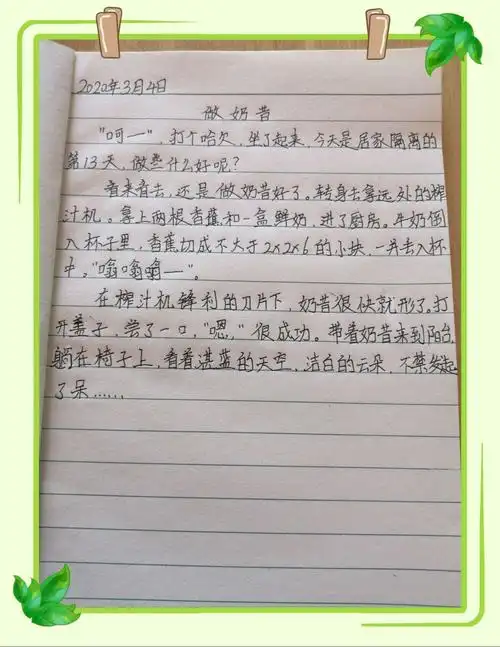 2020年3月4日
做奶昔
"呵一",打个哈欠,坐了起来,今天是居家隔离的
第13天,做些什么好呢?
看来看去,还是做奶昔好了。转身去拿远处的榨
汁机。拿上两根香蕉和一盒鲜奶,进了厨房。牛奶倒
入杯子里,香蕉切成不大于2×2×6的小块,一并去入杯
中,"嗡嗡嗡一"。
在榨汁机锋利的刀片下,奶昔很快就形了。打
开盖子,尝了一口,"嗯,"很成功。带着奶昔来到阳台,
躺在椅子上,看着湛蓝的天空,洁白的云朵,不禁发起
了呆……